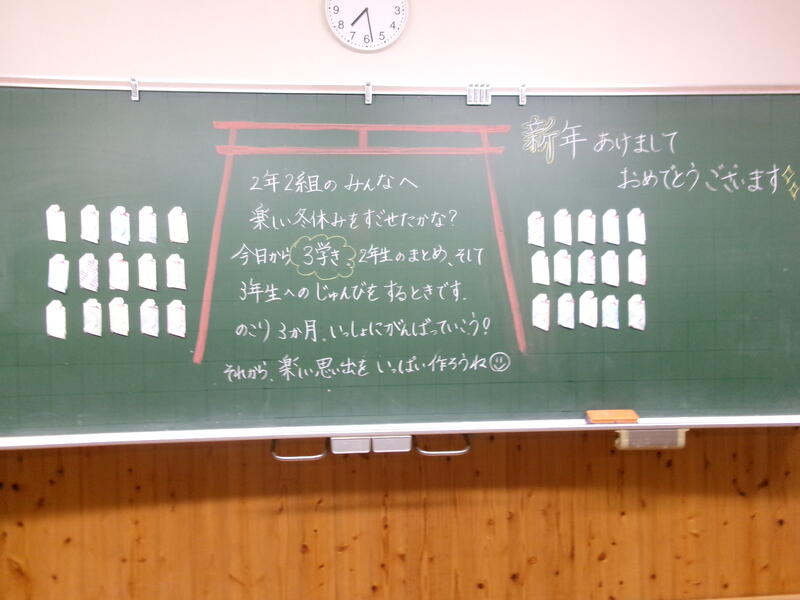 新年あけまして
おめでとうございます
2年2組のみんなへ
楽しい冬休みをすごせたかな?
今日から3学き。2年生のまとめ、そして
3年生へのじゅんびをするときです。
のこり3か月、いっしょにがんばっていこう!
それから、楽しい思い出をいっぱい作ろうね
9
8
7
6
5
4
3